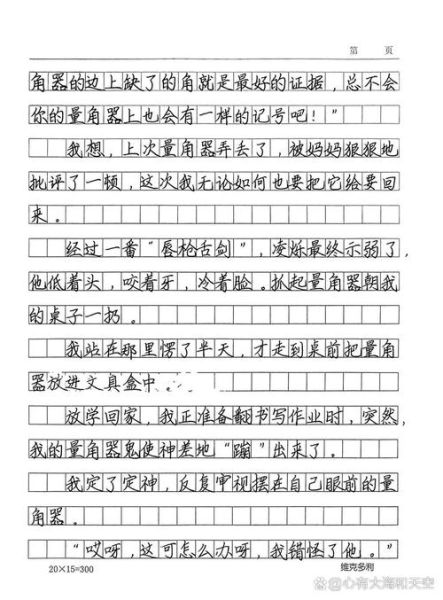 第 页
角器的边上缺了的角就是最好的证据，总不会
你的量角器上也会有一样的记号吧！”
我想，上次量角器弄丢了，被妈妈狠狠地
批评了一顿，这次我无论如何也要把它给要回
来。
经过一番“唇枪舌剑”，凌烁最终示弱了，
他低着头，咬着牙，冷着脸。抓起量角器朝我
的桌子一扔。
我站在那里愣了半天，才走到桌前把量角
器放进文具盒中。
放学回家，我正准备翻书写作业时，突然，
我的量角器鬼使神差地“蹦”出来了。
我定了定神，反复审视摆在自己眼前的量
角器。
“哎呀，这可怎么办呀，我错怪了他。”
20×15=300 维克多利
@心有大海和天空